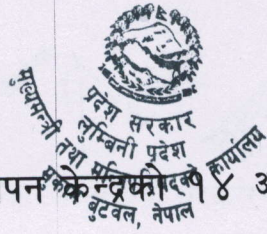 प्रदेश सरकार
लुम्बिनी प्रदेश
मुख्यमन्त्री तथा मन्त्रिपरिषद्को कार्यालय
बुटवल, नेपाल
पन केन्द्रको १४